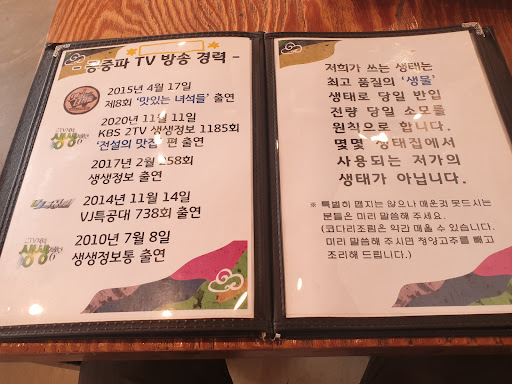 공중파 TV 방송 경력 -
2015년 4월 17일
제8회 '맛있는 녀석들' 출연
2020년 11월 11일
KBS 2TV 생생정보 1185회
'전설의 맛집' 편 출연
2017년 2월 258회
생생정보 출연
2014년 11월 14일
VJ특공대 738회 출연
2010년 7월 8일
생생정보통 출연
저희가 쓰는 생태는
최고 품질의 '생물'
생태로 당일 반입
전량 당일 소모를
원칙으로 합니다.
몇몇 생태집에서
사용되는 저가의
생태가 아닙니다.
※ 특별히 맵지는 않으나 매운것 못드시는
분들은 미리 말씀해 주세요.
(코다리조림은 약간 매울 수 있습니다.
미리 말씀해 주시면 청양고추를 빼고
조리해 드립니다.)